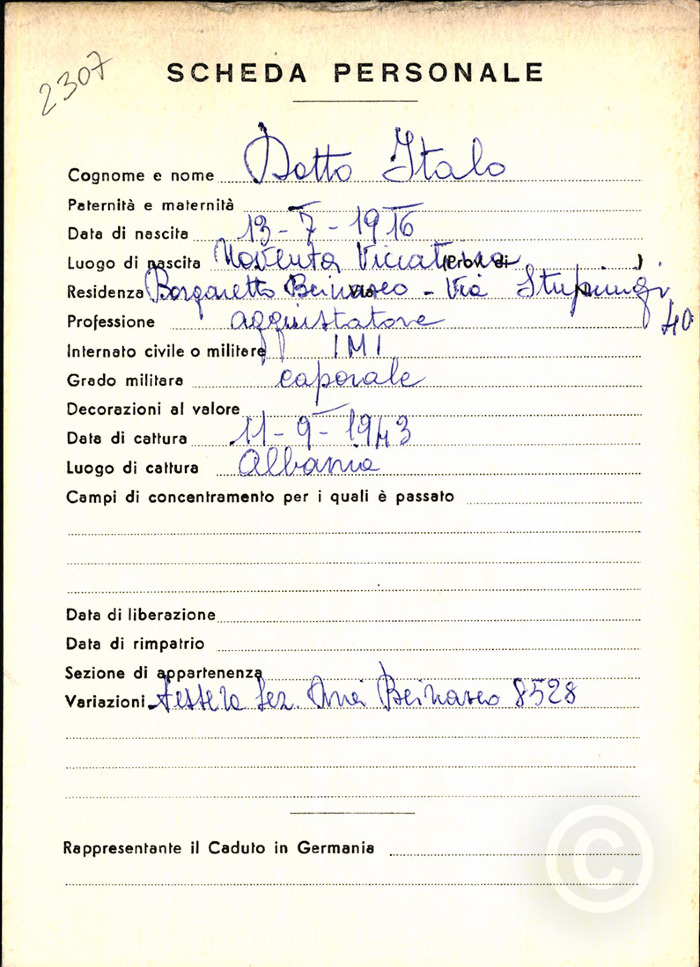 2307
SCHEDA PERSONALE
Cognome e nome Dotto Italo
Paternità e maternità —
Data di nascita 13-7-1916
Luogo di nascita Noventa Vicentina (Prov. di )
Residenza Borgaretto Beinasco - Via Stupinigi
40
Professione aggiustatore
Internato civile o militare IMI
Grado militare caporale
Decorazioni al valore —
Data di cattura 11-9-1943
Luogo di cattura Albania
Campi di concentramento per i quali è passato
Data di liberazione
Data di rimpatrio
Sezione di appartenenza
Variazioni Tessera Sez. Anei Beinasco 8528
Rappresentante il Caduto in Germania
©